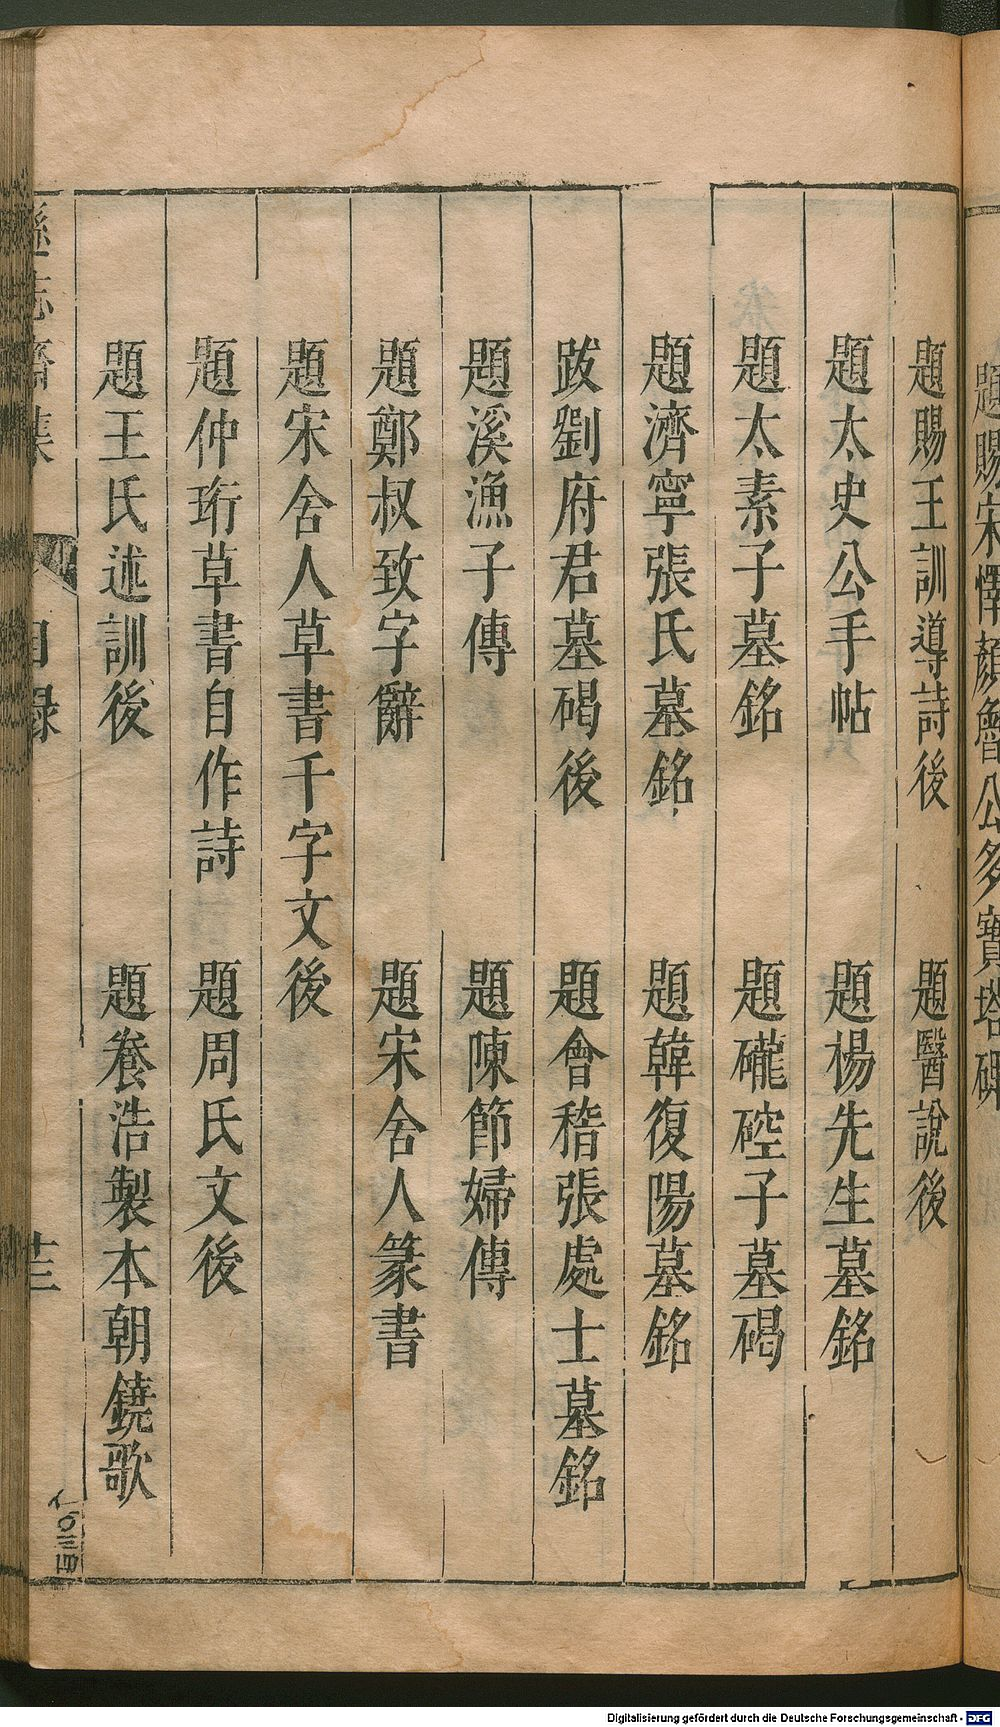 題賜宋懌顏魯公多寶塔碑
題賜王訓導詩後 題醫說後
題太史公手帖 題楊先生墓銘
題太素子墓銘 題礲硿子墓碣
題濟寧張氏墓銘 題韓復陽墓銘
跋劉府君墓碣後 題會稽張處士墓銘
題溪漁子傳 題陳節婦傳
題鄭叔致字辭 題宋舍人篆書
題宋舍人草書千字文後
題仲珩草書自作詩 題周氏文後
題王氏述訓後 題養浩製本朝鐃歌
遜志齋集 目錄
Digitalisierung gefördert durch die Deutsche Forschungsgemeinschaft - DFG